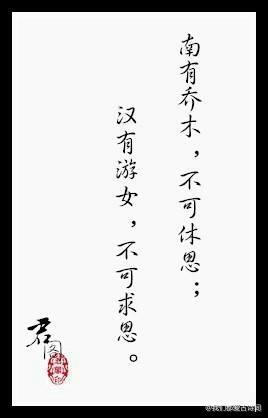 南有乔木，不可休思；
汉有游女，不可求思。
君阁
@我们都爱古诗词